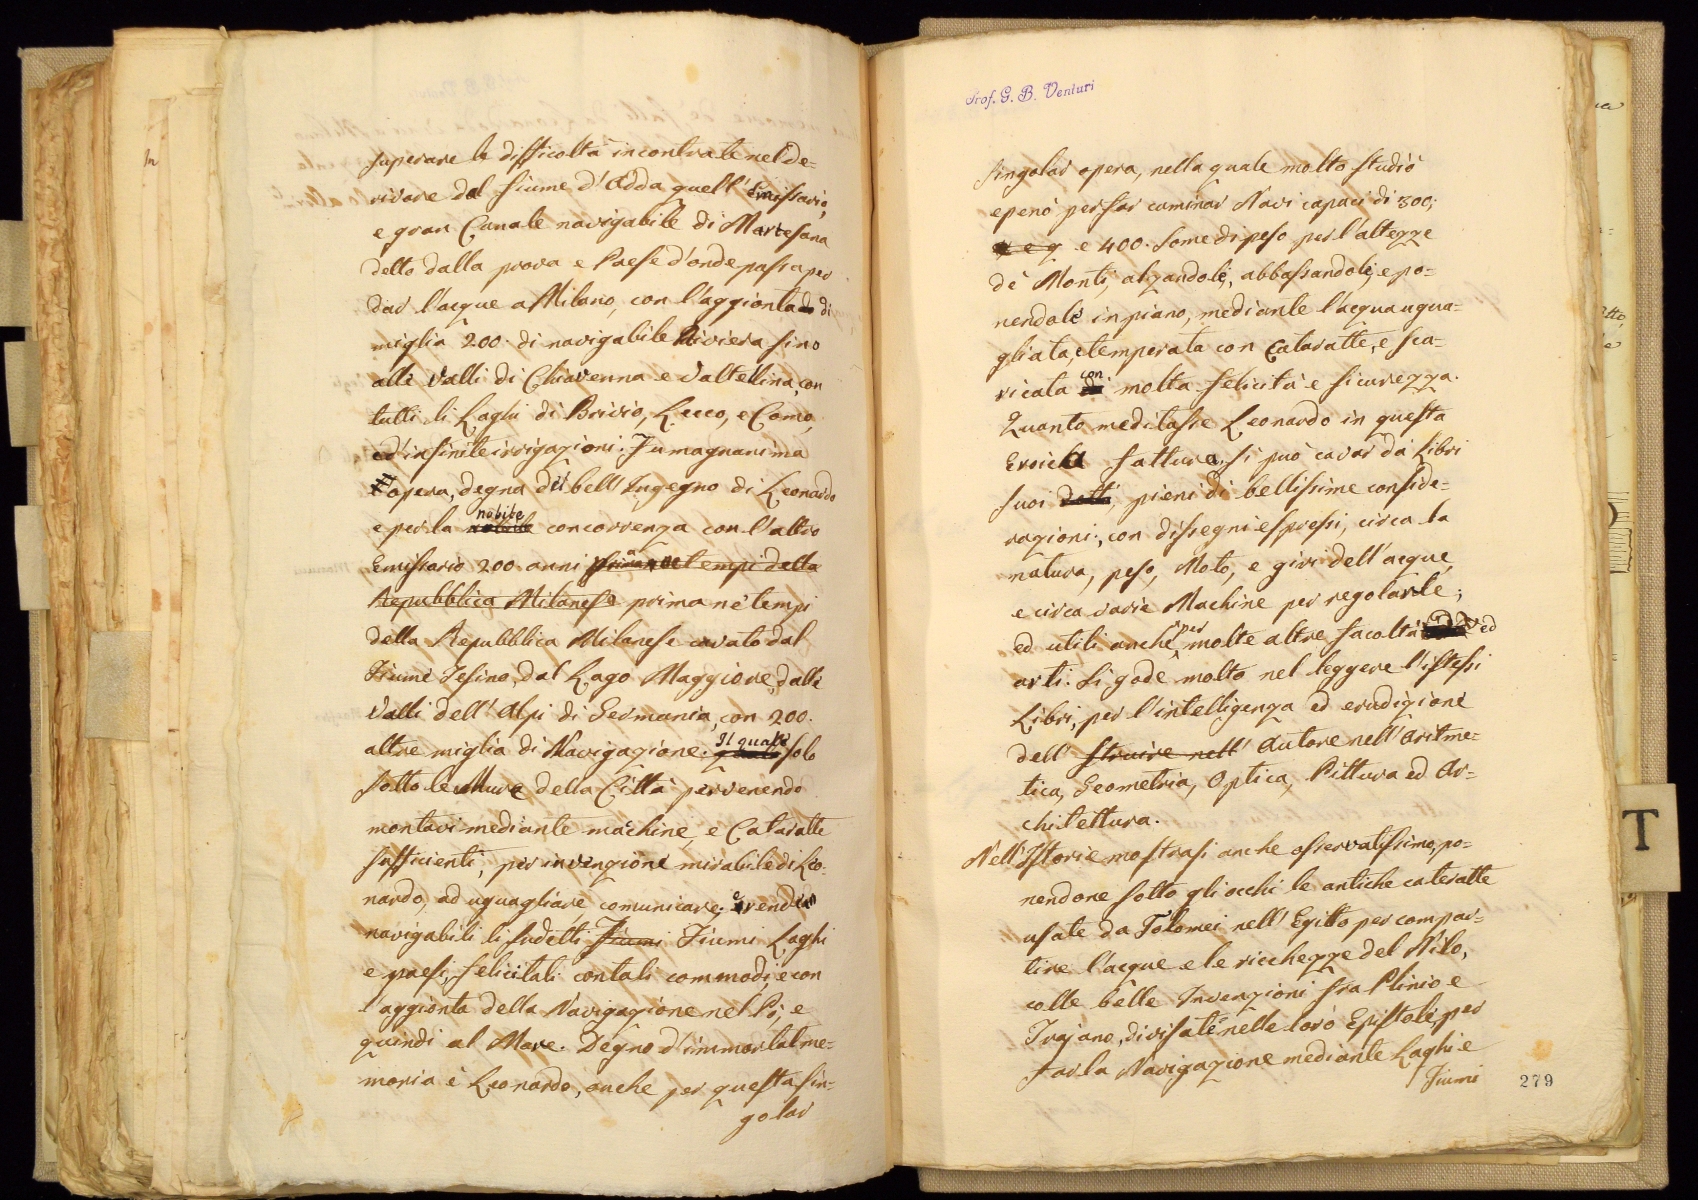 superare le difficoltà incontrate nel de=
rivare dal fiume d'Adda quell'Emissario,
e gran Canale navigabile di Martesana
detto dalla prova e Paese d'onde passa per
dar l'acque a Milano, con l'aggionta di
miglia 200. di navigabile Riviera sino
alle Valli di Chiavenna e Valtellina, con
tutti li Laghi di Brivio, Lecco, e Como,
ed infinite irrigazioni. Fu magnanima
opera, degna di bell'Ingegno di Leonardo
e per la nobile concorrenza con l'altro
Emissario 200 anni prima ne tempi della
Repubblica Milanese prima ne' tempi
della Repubblica Milanese cavato dal
Fiume Tesino, dal Lago Maggiore, dalle
Valli dell'Alpi di Germania, con 200.
altre miglia di Navigazione. Il quale solo
sotto le Mura della Città pervenendo
montavi mediante machine, e Cataratte
sufficienti, per invenzione mirabile di Leo=
nardo, ad uguagliare comunicare, e render
navigabili li sudetti Fiumi Fiumi Laghi
e paesi, felicitati con tali commodi, e con
l'aggionta della Navigazione nel Pò, e
quindi al Mare. Degno d'immortal me=
moria è Leonardo, anche per questa sin=
golar
Prof. G. B. Venturi
singolar opera, nella quale molto studiò
e penò per far caminar Navi capaci di 300;
e 400. some di peso per l'altezze
de' Monti, alzandole, abbassandole, e po=
nendole in piano, mediante l'acqua ugua=
gliata, e temperata con Cataratte, e sca=
ricata con molta felicità e sicurezza.
Quanto meditasse Leonardo in questa
Eroica fattura, si può cavar da Libri
suoi dotti, pieni di bellissime conside=
razioni, con dissegni espressi, circa la
natura, peso, Moto, e giri dell'acque,
e circa varie Machine per regolarle;
ed utili anche per molte altre facoltà ed
arti. Si gode molto nel leggere l'istessi
Libri, per l'intelligenza ed erudizione
dell' struire nell' Autore nell'Aritme=
tica, Geometria, Optica, Pittura ed Ar=
chitettura.
Nell'Istorie mostrasi anche osservatissimo, po=
nendone sotto gli occhi le antiche cateratte
usate da Tolomei nell'Egitto per compar=
tire l'acque e le ricchezze del Nilo,
colle belle Invenzioni fra Plinio e
Trajano, divisate nelle loro Epistole per
far la Navigazione mediante Laghi e
Fiumi
279
T